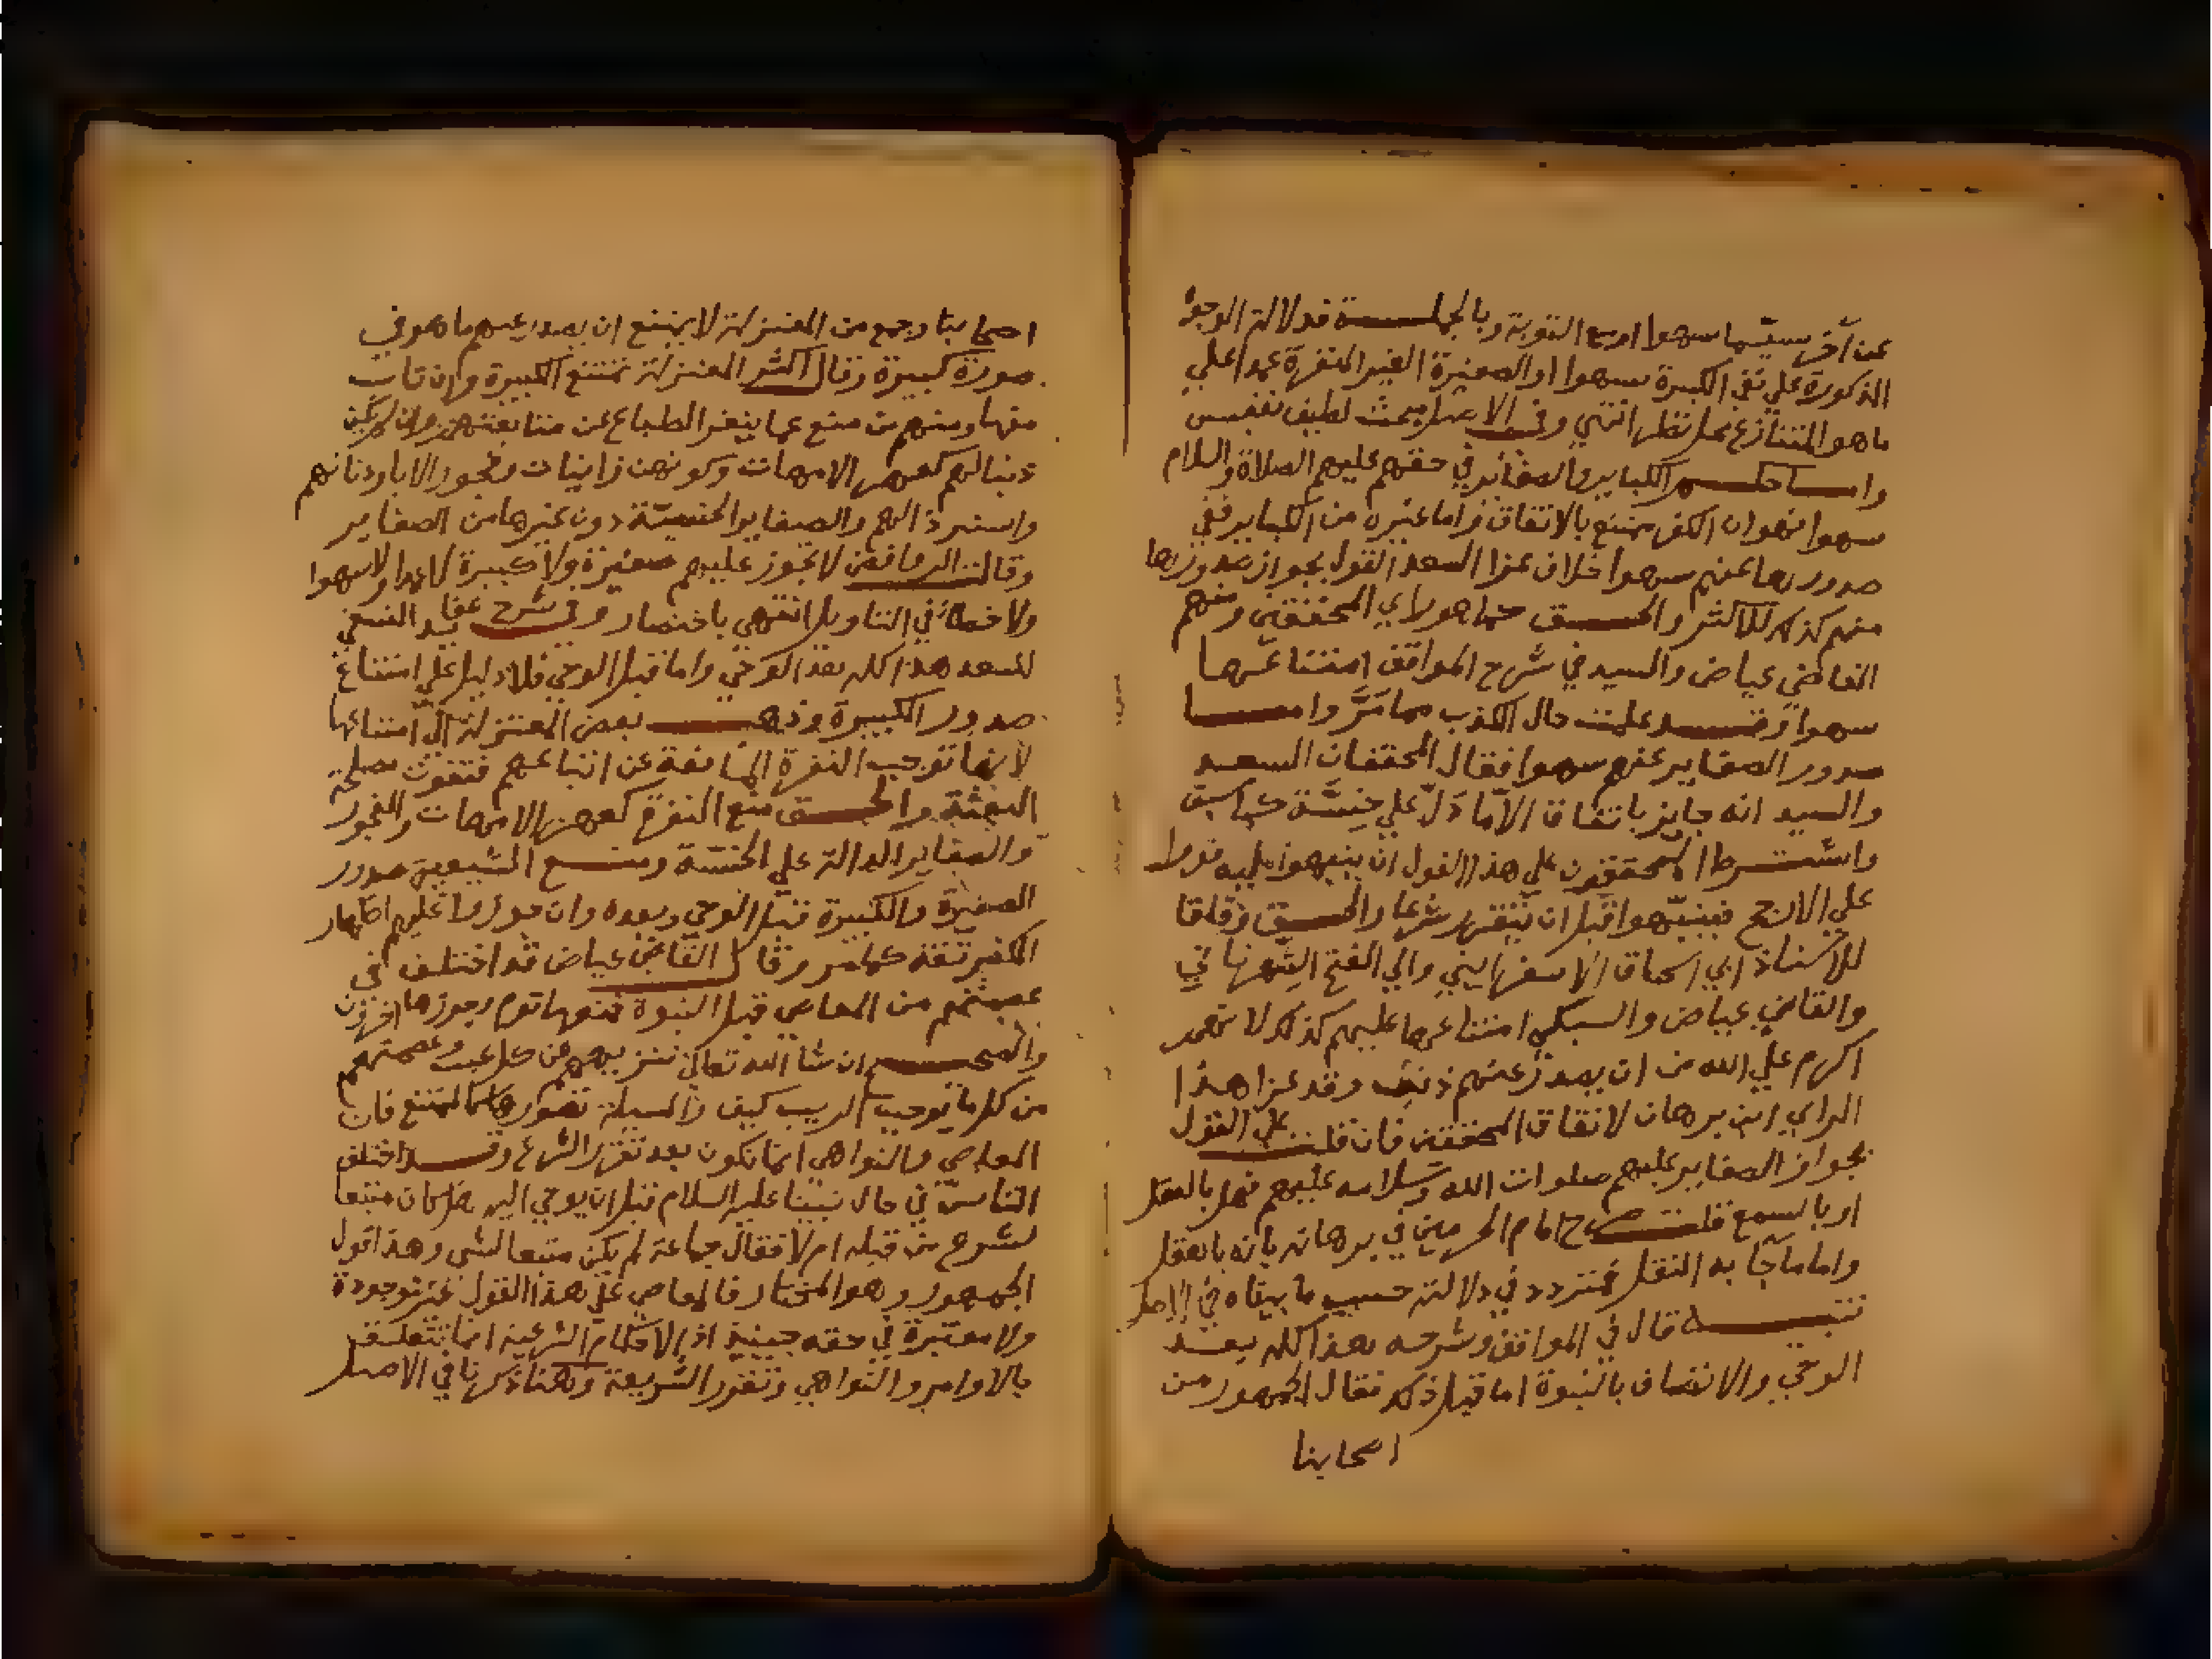 عن آخر سيّما سهوا او مع التوبة وبالجملة فدلالة الوجوه
المذكورة على نفي الكبيرة سهوا او الصغيرة الغير المنفرة عمدا على
ما هو المتنازع محل نظر انتهي وفي الاصل مبحث لطيف نفيس
واما حكم الكباير والصغائر في حقهم عليهم الصلاة والسلام
سهوا فهو ان الكفر ممتنع بالاتفاق واما غيره من الكباير ففي
صدورها عنهم سهوا خلاف عزا السعد القول بجواز صدورها
منهم كذلك للاكثر والحق كما هو راي المحققين ومنهم
القاضي عياض والسيد في شرح المواقف امتناعها
سهوا وقد علمت حال الكذب مما مَرَّ واما
صدور الصغاير عنهم سهوا فقال المحققان السعد
والسيد انه جايز باتفاق الاّ ما دَلّ علي خِسَّة كما سبق
واشترط المحققون علي هذا القول ان ينبهوا عليه فورا
علي الارجح فينبّهوا قبل ان يتقرر شرعا والحق وفاقا
للاستاذ ابي اسحاق الاسفرايني وابي الفتح الشهرستاني
والقاضي عياض والسبكي امتناعها عليهم كذلك لانهم
اكرم علي الله من ان يصدر عنهم ذنب وقد عزا هذا
الراي ابن برهان لاتفاق المحققين فان قلت علي القول
بجواز الصغاير عليهم صلوات الله وسلامه عليهم فهل بالعقل
او بالسمع قلت صرح امام الحرمين في برهانه بانه بالعقل
واما ما جآ به النقل فمتردد في دلالته حسب ما بيناه في الاصل
تنبيه قال في المواقف وشرحه هذا كله بعد
الوحي والاتصاف بالنبوة اما قبل ذلك فقال الجمهور من
اصحابنا
اصحابنا وجمع من المعتزلة لا يمتنع ان يصدر عنهم ما هو في
صورة كبيرة وقال اكثر المعتزلة تمتنع الكبيرة وان تاب
منها ومنهم من منع عما ينفر الطباع عن متابعتهم وان لم يكن
ذنبا لهم كعهر الامهات وكونهن زانيات وفجور الابا ودناتهم
واسترذالهم والصغاير الخسيسّة دون غيرها من الصغاير
وقالت الروافض لا تجوز عليهم صغيرة ولا كبيرة لا عمدا ولا سهوا
ولا خطأ في التاويل انتهي باختصار وفي شرح عقايد النسفي
للسعد هذا كله بعد الوحي واما قبل الوحي فلا دليل علي امتناع
صدور الكبيرة وذهب بعض المعتزلة الي امتناعها
لانها توجب النفرة المانعة عن اتباعهم فتفوت مصلحة
البعثة والحق منع النفرة كعهر الامهات والفجور
والصغاير الدالة علي الخسّة ومنع الشيعة صدور
الصغيرة والكبيرة قبل الوحي وبعده وان جوزوا عليهم اظهار
الكفر تقية كما مر وقال القاضي عياض قد اختلف في
عصمتهم من المعاصي قبل النبوة فمنعها قوم وجوزها اخرون
والصحيح ان شا الله تعالي تنزيههم عن كل عيب وعصمتهم
من كل ما يوجب الريب كيف والمسيلة تصورها كالممتنع فان
المعاصي والنواهي انما تكون بعد تقرر الشرع وقد اختلف
الناس في حال نبينا عليه السلام قبل ان يوحي اليه هل كان متبعا
لشرع من قبله ام لا فقال جماعة لم يكن متبعا لشي وهذا قول
الجمهور وهو المختار فالمعاصي علي هذا القول غير موجودة
ولا معتبرة في حقه حينيذ اذ الاحكام الشرعية انما تتعلق
بالاوامر والنواهي وتقرر الشريعة وهنا ذكرنا في الاصل